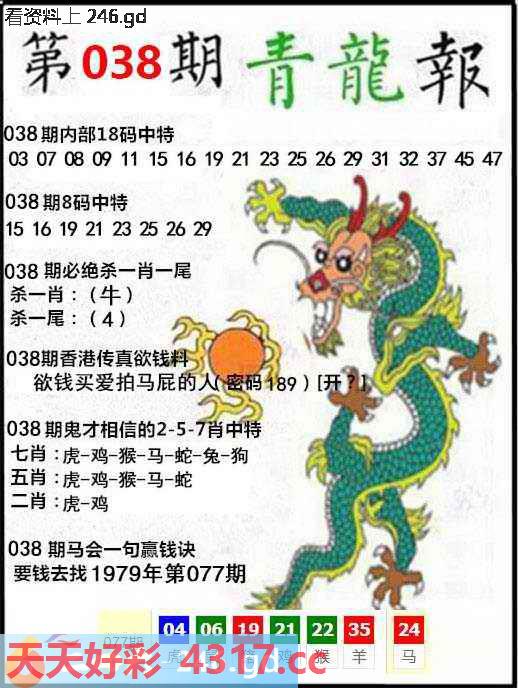 看资料上 246.gd
第 038 期 青龍報
038期内部18码中特
03 07 08 09 11 15 16 19 21 23 25 26 29 31 32 37 45 47
038期8码中特
15 16 19 21 23 25 26 29
038 期必绝杀一肖一尾
杀一肖：（牛）
杀一尾：（4）
038期香港传真欲钱料
欲钱买爱拍马屁的人(密码189）[开？]
038期鬼才相信的2-5-7肖中特
七肖：虎-鸡-猴-马-蛇-兔-狗
五肖：虎-鸡-猴-马-蛇
二肖：虎-鸡
038 期马会一句赢钱诀
要钱去找1979年第077期
04 06 19 21 22 35 24
077期 虎 鸡 猴 羊 马
246.gd
天天好彩 4317.cc